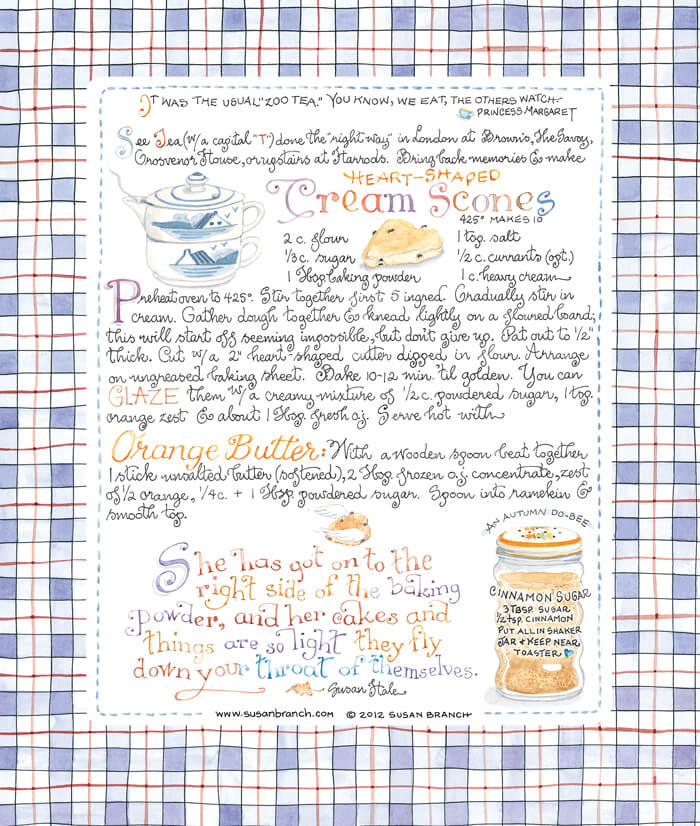 It was the usual "zoo tea." You know, we eat, the others watch –
Princess Margaret
See Tea (w/a capital "T") done the "right way" in London at Brown's, The Savoy,
Grosvenor House, or upstairs at Harrods. Bring back memories & make
HEART-SHAPED
Cream Scones
425° MAKES 10
2 c. flour
1 tsp. salt
1/3 c. sugar
1/2 c. currants (opt.)
1 Tbsp. baking powder
1 c. heavy cream
Preheat oven to 425°. Stir together first 5 ingred. Gradually stir in
cream. Gather dough together & knead lightly on a floured board;
this will start off seeming impossible, but don't give up. Pat out to 1/2"
thick. Cut w/a 2" heart-shaped cutter dipped in flour. Arrange
on ungreased baking sheet. Bake 10-12 min. 'til golden. You can
GLAZE them w/ a creamy mixture of 1/2 c. powdered sugar, 1 tsp.
orange zest & about 1 Tbsp. fresh o.j. Serve hot with
Orange Butter: With a wooden spoon beat together
1 stick unsalted butter (softened), 2 Tbsp. frozen o.j. concentrate, zest
of 1/2 orange, 1/4 c. + 1 Tbsp powdered sugar. Spoon into ramekin &
smooth top.
AN AUTUMN DO-BEE
She has got on to the
right side of the baking
powder, and her cakes and
things are so light they fly
down your throat of themselves.
Susan Hale
CINNAMON SUGAR
3 TBSP. SUGAR
1/2 tsp. CINNAMON
PUT ALL IN SHAKER
JAR & KEEP NEAR
TOASTER
www.susanbranch.com © 2012 SUSAN BRANCH